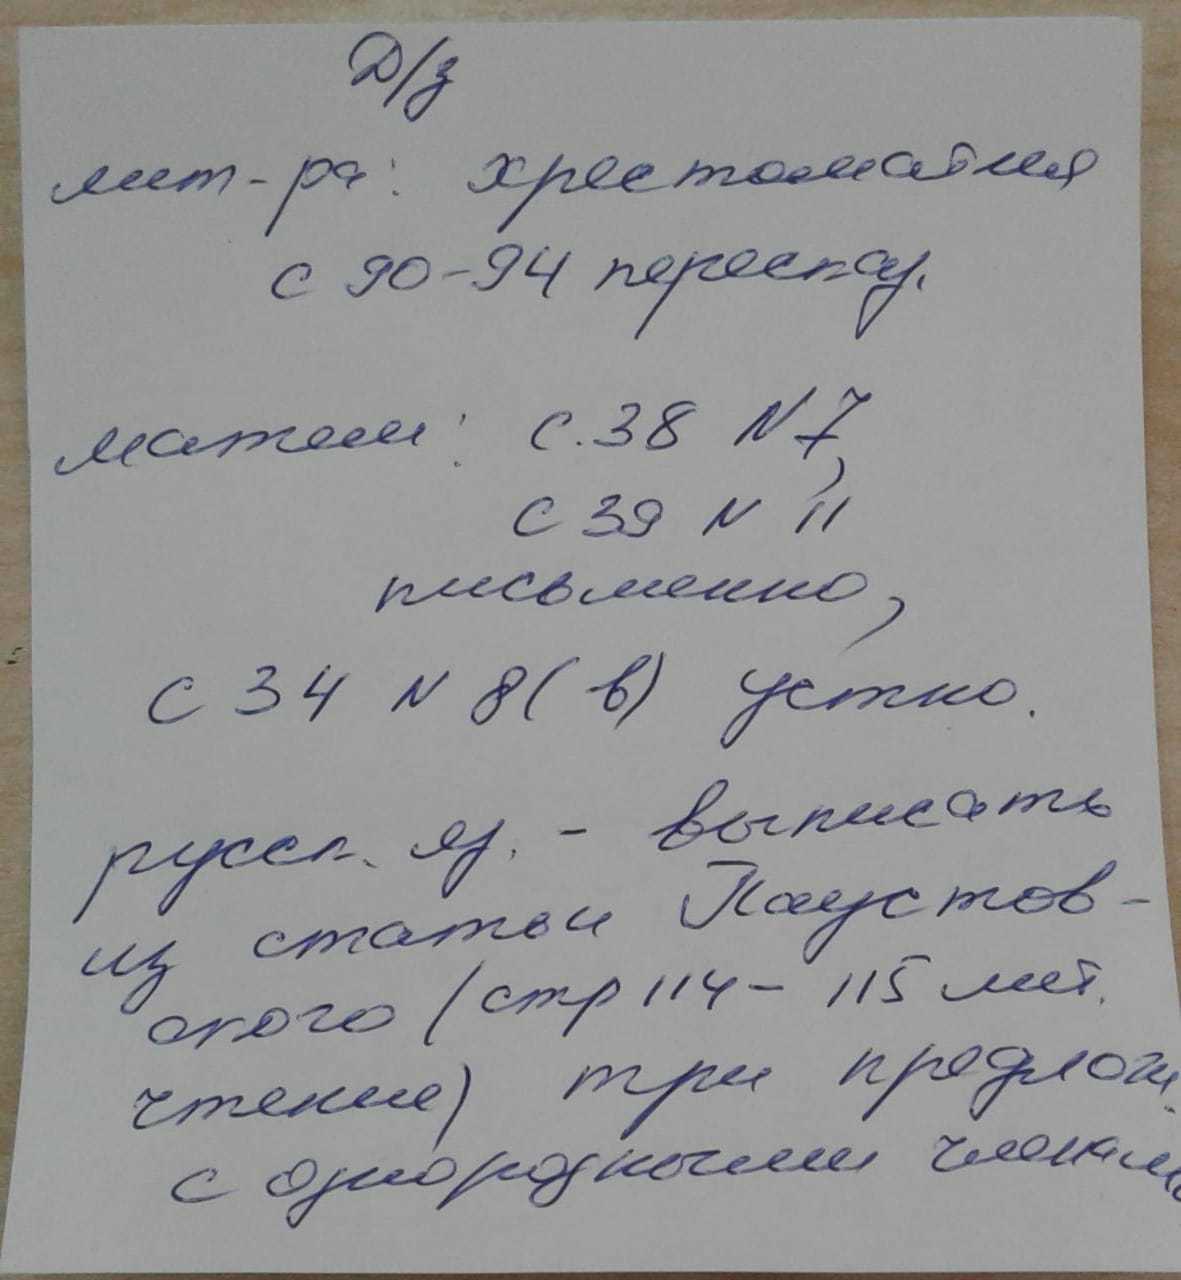 Д/з
лит-ра: хрестоматия
с 90-94 переск.
матем: с.38 N7,
с 39 N 11
письменно,
с 34 N 8(в) устно.
русск. яз. - выписать
из статьи Паустов-
ского (стр 114-115 лит.
чтение) три предлож.
с однородными членами